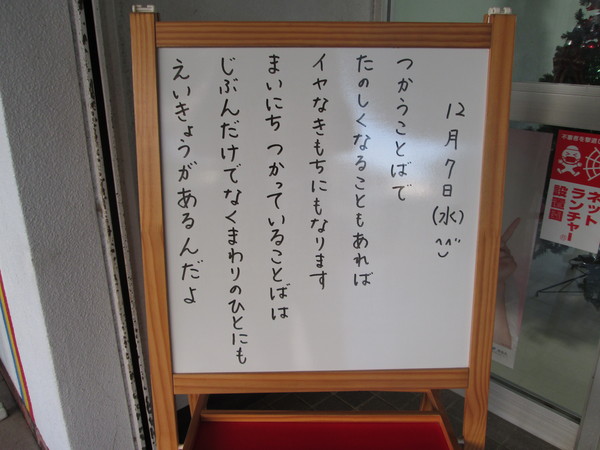 12月7日(水)^^
つかうことばで
たのしくなることもあれば
イヤなきもちにもなります
まいにちつかっていることばは
じぶんだけでなくまわりのひとにも
えいきょうがあるんだよ
ネット
ランチャー
設置園